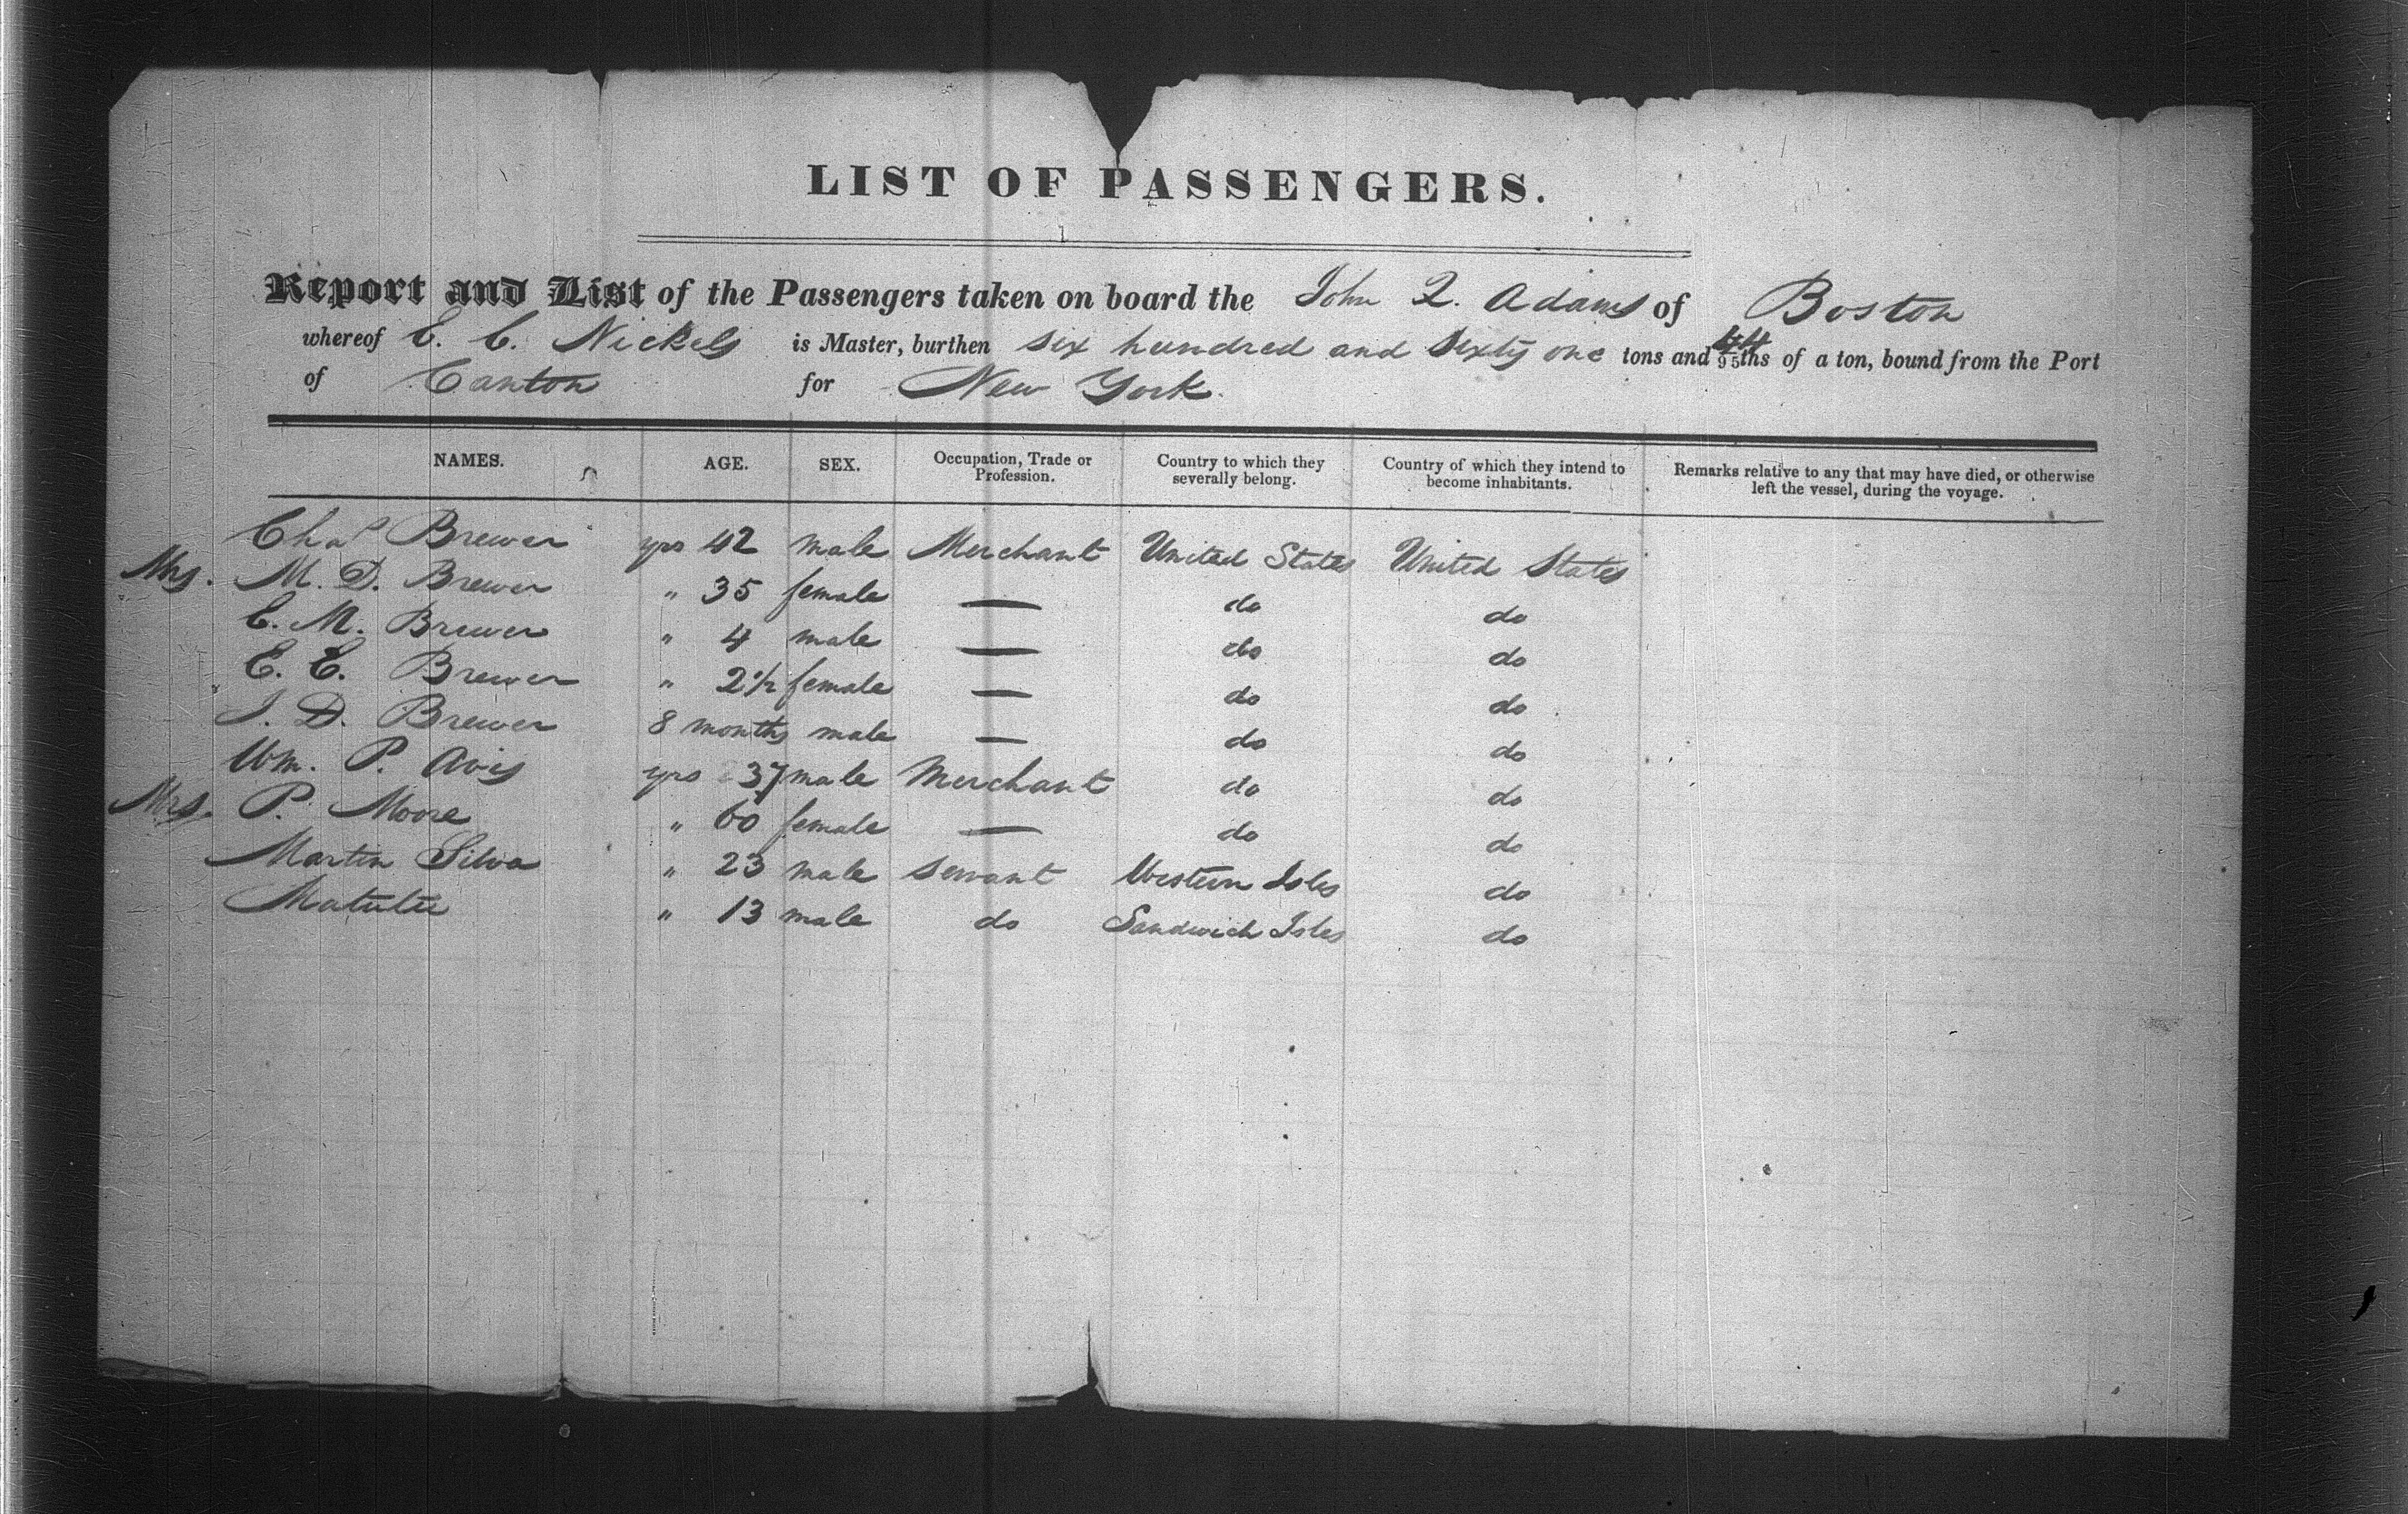 LIST OF PASSENGERS.
Report and List of the Passengers taken on board the John Q. Adams of Boston
whereof E. C. Nickels is Master, burthen six hundred and sixty one tons and 44/95ths of a ton, bound from the Port
of Canton for New York.
NAMES. AGE. SEX. Occupation, Trade or Profession. Country to which they severally belong. Country of which they intend to become inhabitants. Remarks relative to any that may have died, or otherwise left the vessel, during the voyage.
Chas Brewer yrs 42 male Merchant United States United States
Mrs. M. D. Brewer " 35 female — do do
C. M. Brewer " 4 male — do do
E. E. Brewer " 2½ female — do do
J. D. Brewer 8 months male — do do
Wm. P. Avis yrs 37 male Merchant do do
Mrs. P. Moore " 60 female — do do
Martin Silva " 23 male servant Western Isles do
" 13 male do Sandwich Isles do